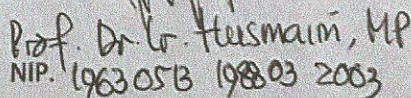 Prof. Dr. Ir. Husmaini, MP
NIP. 19630513 198803 2003